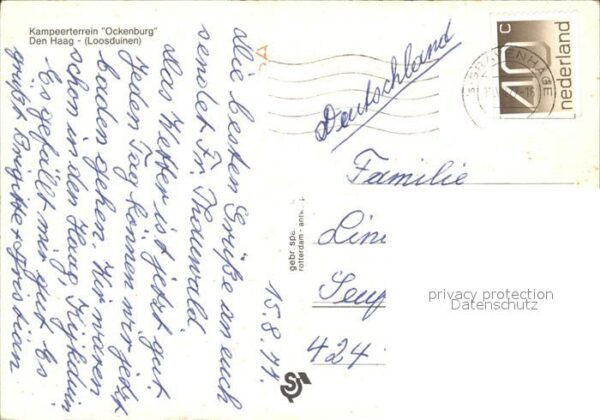 Kampeerterrein "Ockenburg"
Den Haag - (Loosduinen)
15.8.77.
Die besten Grüße an euch
sendet Fr. Thduwald
das Wetter ist jetzt gut
jeden Tag können wir jetzt
baden gehen. Wir waren
schon in den Haag, Kijkduin
Es gefällt mir gut Es
grüßt Brigitte + Cristian
gebr. spa
rotterdam - antw
Deutschland
's-GRAVENHAGE
40 c
nederland
Familie
Line
Seuf
424
privacy protection
Datenschutz